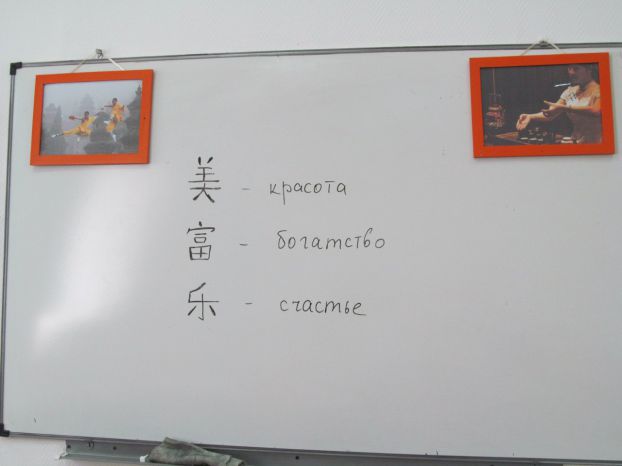 美 - красота
富 - богатство
乐 - счастье